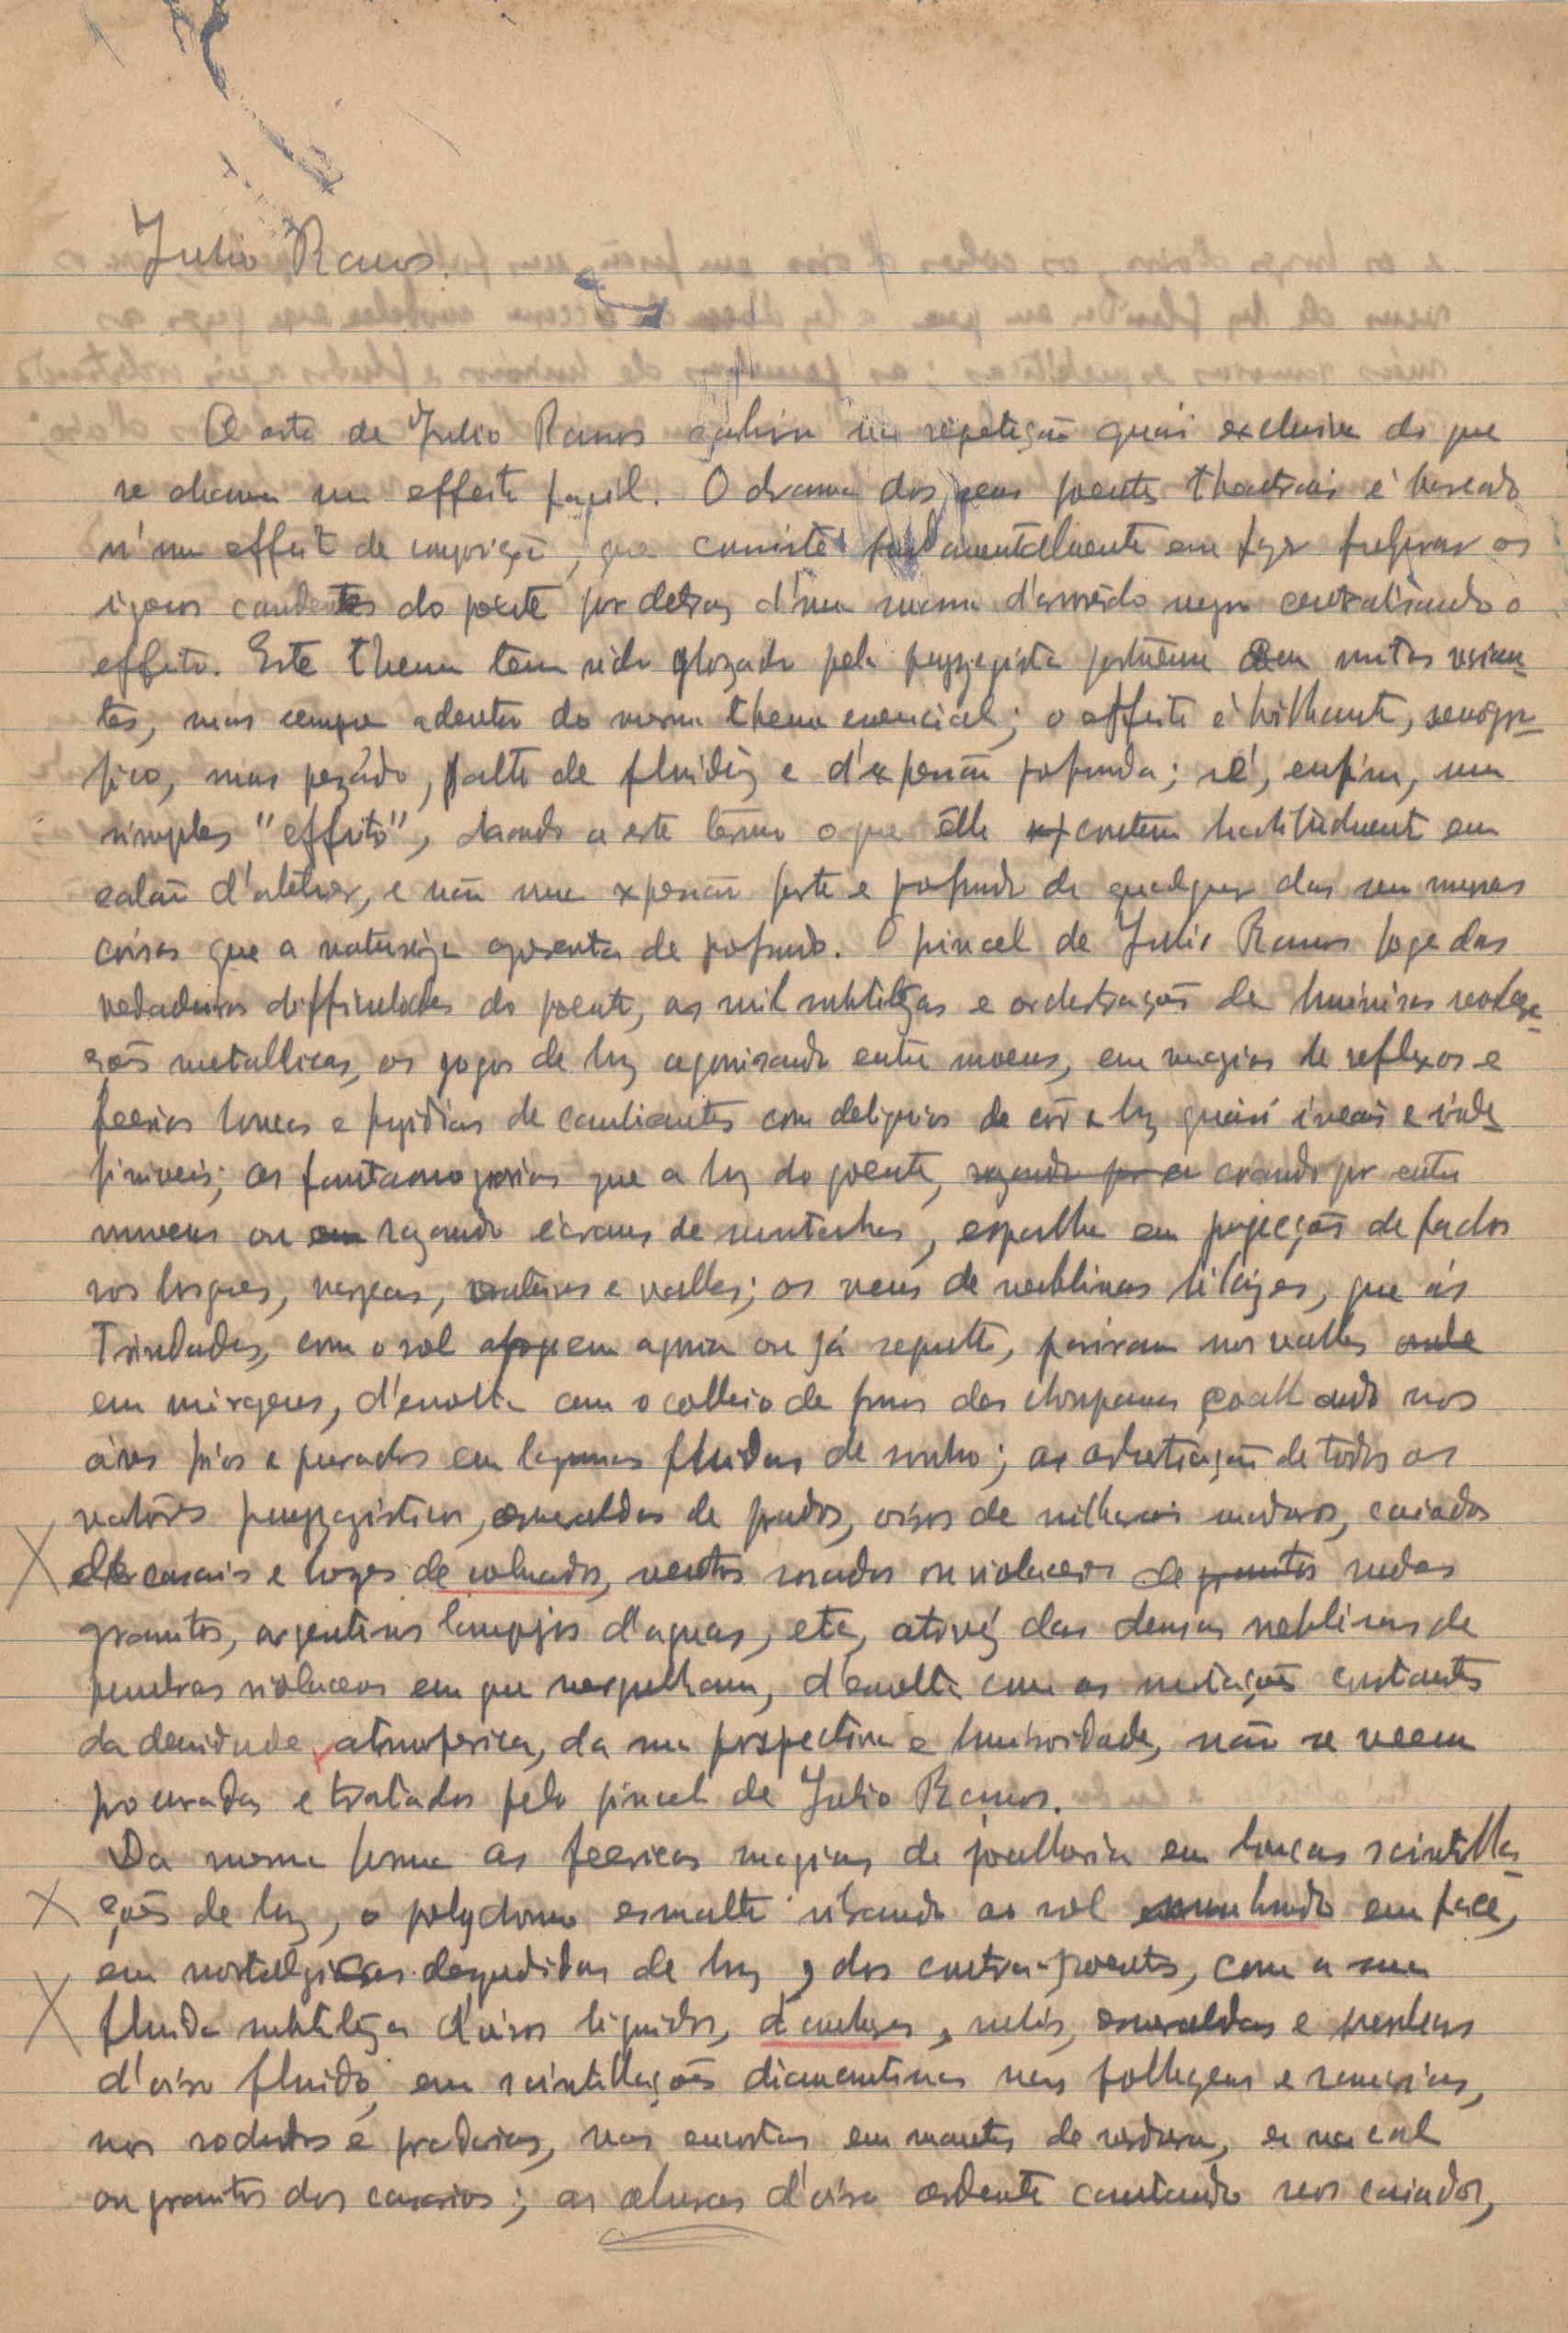 Julio Ramos.
A arte de Julio Ramos na repetição quási exclusiva do que
se chama um effeito facil. O drama dos seus poentes theatrais é baseado
n'um effeito de composição, que consiste fundamentalmente em fazer os
do poente por detraz d'uma massa d'arvoredo negro centralisando o
effeito. Este thema tem sido glozado pelo payzagista portuense em muitas varian-
tes, mas sempre adentro do mesmo thema essencial; o effeito é brilhante, scenogra-
fico, mas pezádo, falto de fluidez e d'expressão profunda; é, enfim, um
simples "effeito", dando a este termo o que élle contem habitualmente em
calão d'atelier, e não uma expressão forte e profunda de qualquer das mil
coisas que a natureza apresenta de profundo. O pincel de Julio Ramos foge das
verdadeiras difficuldades do poente, as mil subtilezas e orchestrações de
metallicas, os jogos de luz agonisando entre nuvens, em magias de reflexos e
feerias loucas e de cambiantes com deliquios de côr e luz quási irreais e inde-
finiveis; as fantasmagorias que a luz do poente, coando por entre
nuvens ou razando écrans de montanhas, espalha em projecções de
nos bosques, varzeas, e valles; os veus de neblinas lilazes, que ás
Trindades, com o sol em agonia ou já sepulto, pairam nos valles
em miragens, d'envolta com o das choupanas coalhando nos
áres frios e parados em lagunas fluidas de sonho; a orchestração de todos os
valôres payzagisticos, esmeraldas de prados, oiros de milharais maduros, caiados
de casais e de, rosados ou violaceos de rudes
granitos, argentinos lampejos d'aguas, etc, atravez das densas neblinas de
penumbras violaceas em que mergulham, d'envolta com as mutações constantes
da densidade atmosferica, da sua perspectiva e luminosidade, não se veem
procuradas e tratadas pelo pincel de Julio Ramos.
Da mesma forma as feericas magias de joalharia em loucas scintilla-
ções de luz, o polychromo esmalte vibrando ao sol em face,
em nostalgicas despedidas de luz, dos contra-poentes, com a sua
fluida subtileza d'oiros liquidos, rubis, esmeraldas e
d'oiro fluido, em scintillações diamantinas nas folhagens e ramarias,
nos e pradarias, nas encostas em mantos de verdura, e na cal
ou granitos dos casarios; as d'oiro ardente cantando nos caiados,